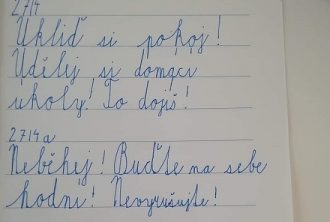 2714
Ukliď si pokoj!
Udělej si domácí
úkoly! To dojíš!
2714a
Neběhej! Buďte na sebe
hodní! Nevyrušujte!